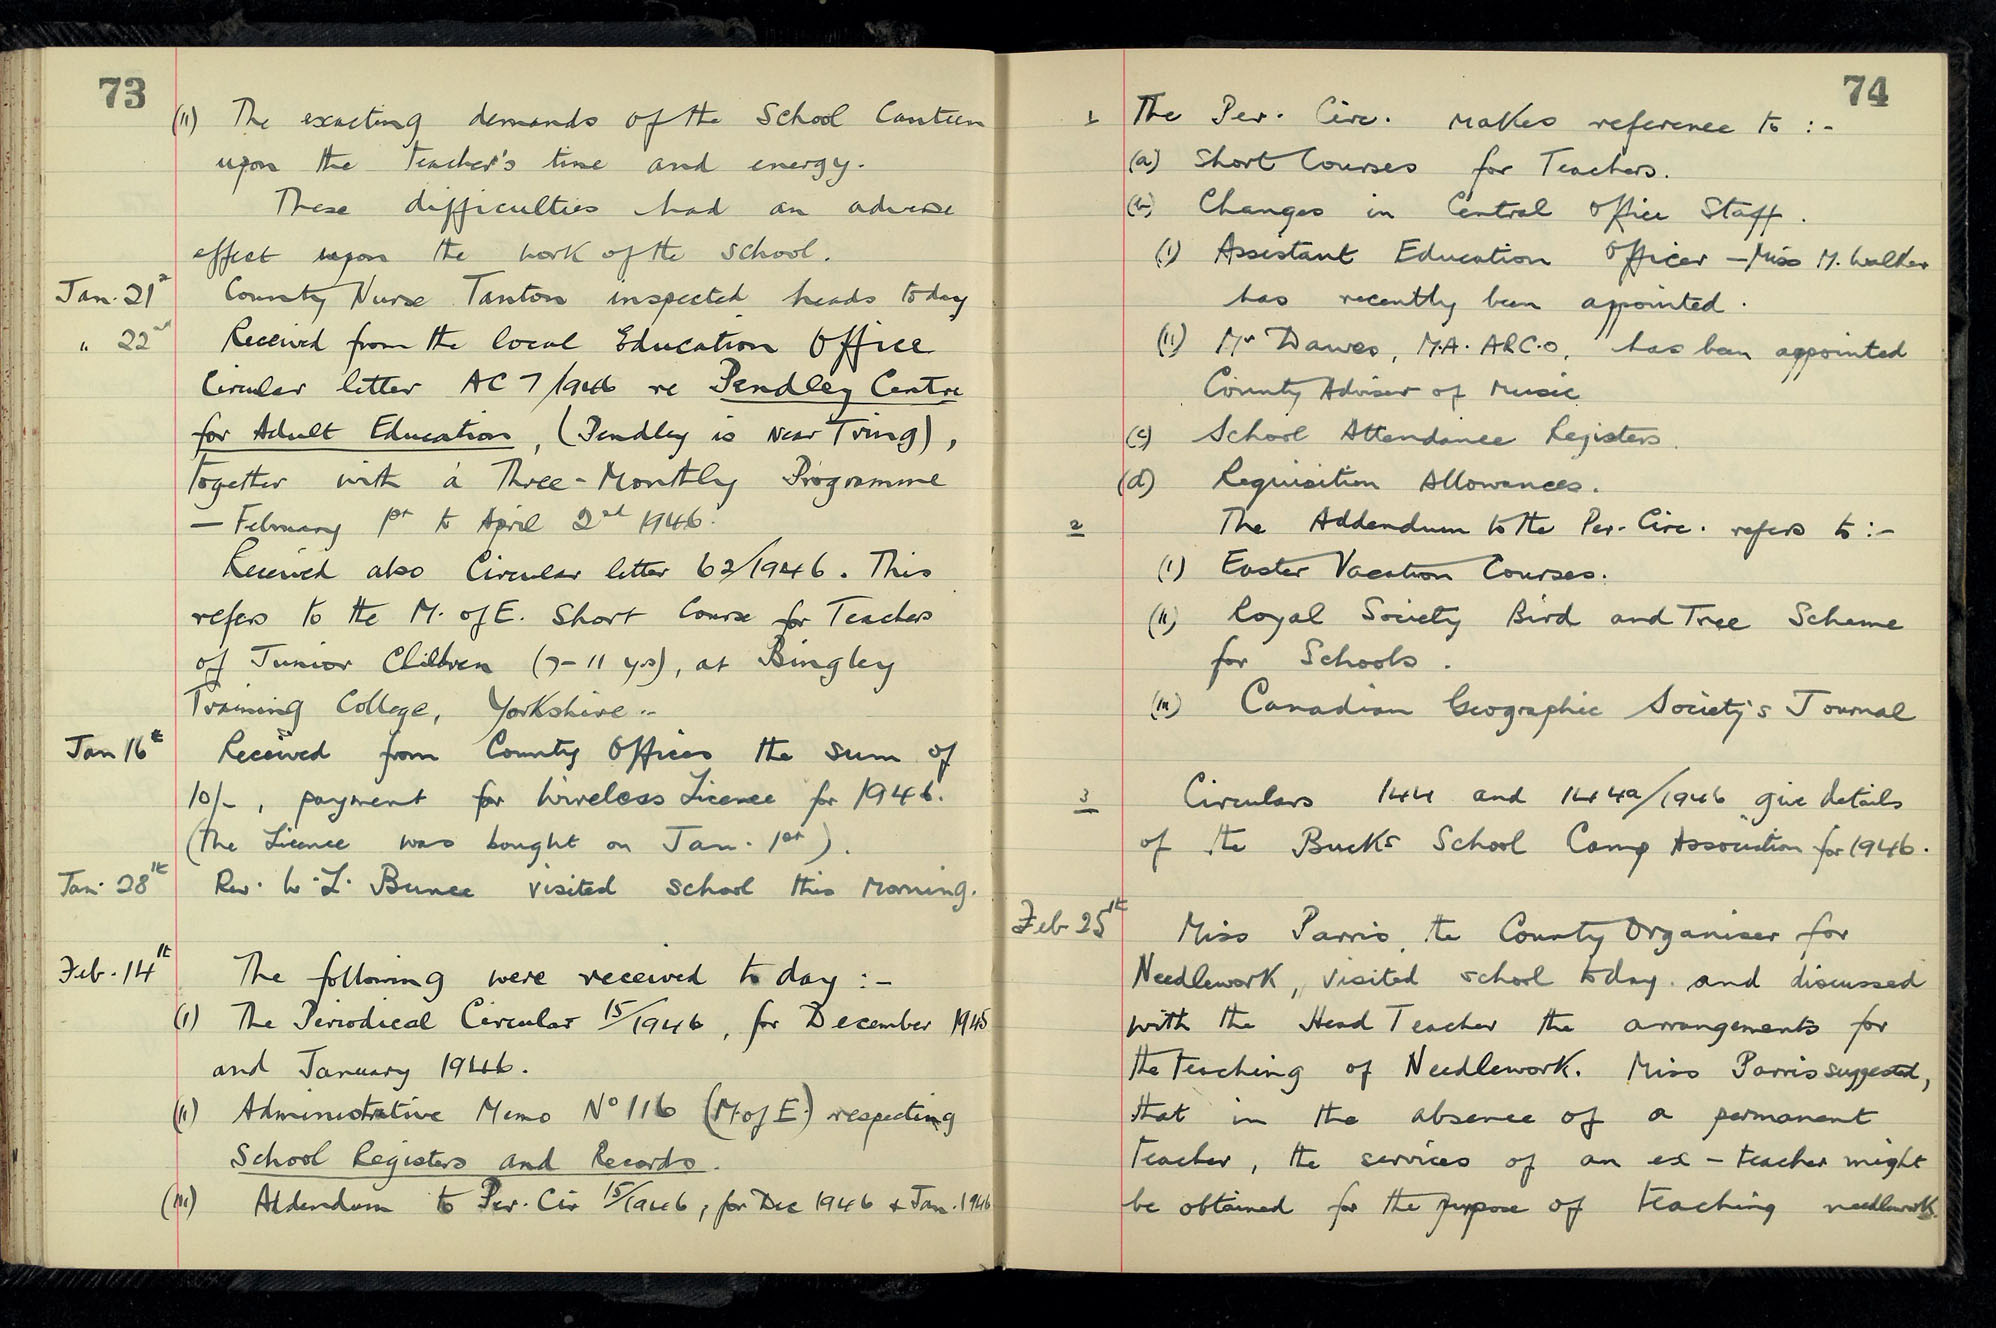 73
(ii) The exacting demands of the School Canteen
upon the teacher's time and energy.
These difficulties had an adverse
effect upon the work of the school.
Jan. 21st County Nurse Tanton inspected heads today
" 22nd Received from the local Education Office
Circular letter AC 7/1946 re Pendley Centre
for Adult Education, (Pendley is near Tring),
together with a Three-Monthly Programme
- February 1st to April 2nd 1946.
Received also Circular letter 62/1946. This
refers to the M. of E. Short Course for Teachers
of Junior Children (7-11 yrs), at Bingley
Training College, Yorkshire.
Jan 16th Received from County Offices the sum of
10/-, payment for Wireless Licence for 1946.
(The Licence was bought on Jan. 1st).
Jan. 28th Rev. W. L. Bunce visited school this morning.
Feb. 14th The following were received today :-
(i) The Periodical Circular 15/1946, for December 1945
and January 1946.
(ii) Administrative Memo No 116 (M. of E.) respecting
School Registers and Records.
(iii) Addendum to Per. Cir 15/1946, for Dec 1946 & Jan. 1946
74
1 The Per. Circ. makes reference to :-
(a) Short Courses for Teachers.
(b) Changes in Central Office Staff.
(i) Assistant Education Officer - Miss M. Walker
has recently been appointed.
(ii) Mr Dawes, M.A. A.R.C.O, has been appointed
County Adviser of Music
(c) School Attendance Registers.
(d) Requisition Allowances.
2 The Addendum to the Per. Circ. refers to :-
(i) Easter Vacation Courses.
(ii) Royal Society Bird and Tree Scheme
for Schools.
(iii) Canadian Geographic Society's Journal
3 Circulars 144 and 144a/1946 give details
of the Bucks School Camp Association for 1946.
Feb 25th Miss Parris, the County Organiser for
Needlework, visited school today and discussed
with the Head Teacher the arrangements for
the teaching of Needlework. Miss Parris suggested,
that in the absence of a permanent
teacher, the services of an ex-teacher might
be obtained for the purpose of teaching needlework.